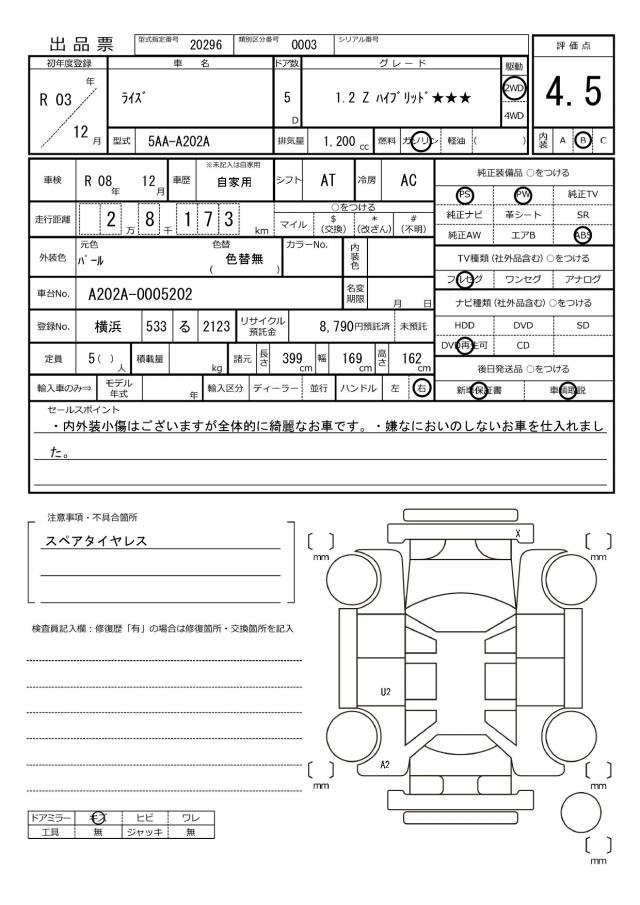 出品票
型式指定番号 20296 類別区分番号 0003 シリアル番号
評価点
4.5
内装 A B C
初年度登録 車名 ドア数 グレード 駆動
R 03 年 12 月
ﾗｲｽﾞ
5 D
1.2 Z ﾊｲﾌﾞﾘｯﾄﾞ★★★
2WD
4WD
型式 5AA-A202A 排気量 1,200 cc 燃料 ガソリン 軽油 ( )
車検 R 08 年 12 月 車歴 ※未記入は自家用 自家用 シフト AT 冷房 AC
走行距離 2 万 8 千 1 7 3 km
○をつける
マイル $ (交換) * (改ざん) # (不明)
外装色 元色 ﾊﾟｰﾙ 色替 ( 色替無 ) カラーNo. 内装色
車台No. A202A-0005202 名変期限 月 日
登録No. 横浜 533 る 2123 リサイクル預託金 8,790円預託済 未預託
定員 5 ( ) 人 積載量 kg 諸元 長さ 399 cm 幅 169 cm 高さ 162 cm
輸入車のみ⇒ モデル年式 年 輸入区分 ディーラー 並行 ハンドル 左 右
純正装備品 ○をつける
PS PW 純正TV
純正ナビ 革シート SR
純正AW エアB ABS
TV種類 (社外品含む) ○をつける
フルセグ ワンセグ アナログ
ナビ種類 (社外品含む) ○をつける
HDD DVD SD
DVD再生可 CD
後日発送品 ○をつける
新車保証書 車輌取説
セールスポイント
・内外装小傷はございますが全体的に綺麗なお車です。・嫌なにおいのしないお車を仕入れまし
た。
注意事項・不具合箇所
スペアタイヤレス
検査員記入欄：修復歴「有」の場合は修復箇所・交換箇所を記入
ドアミラー キズ ヒビ ワレ
工具 無 ジャッキ 無
X
mm
mm
U2
A2
mm
mm
mm